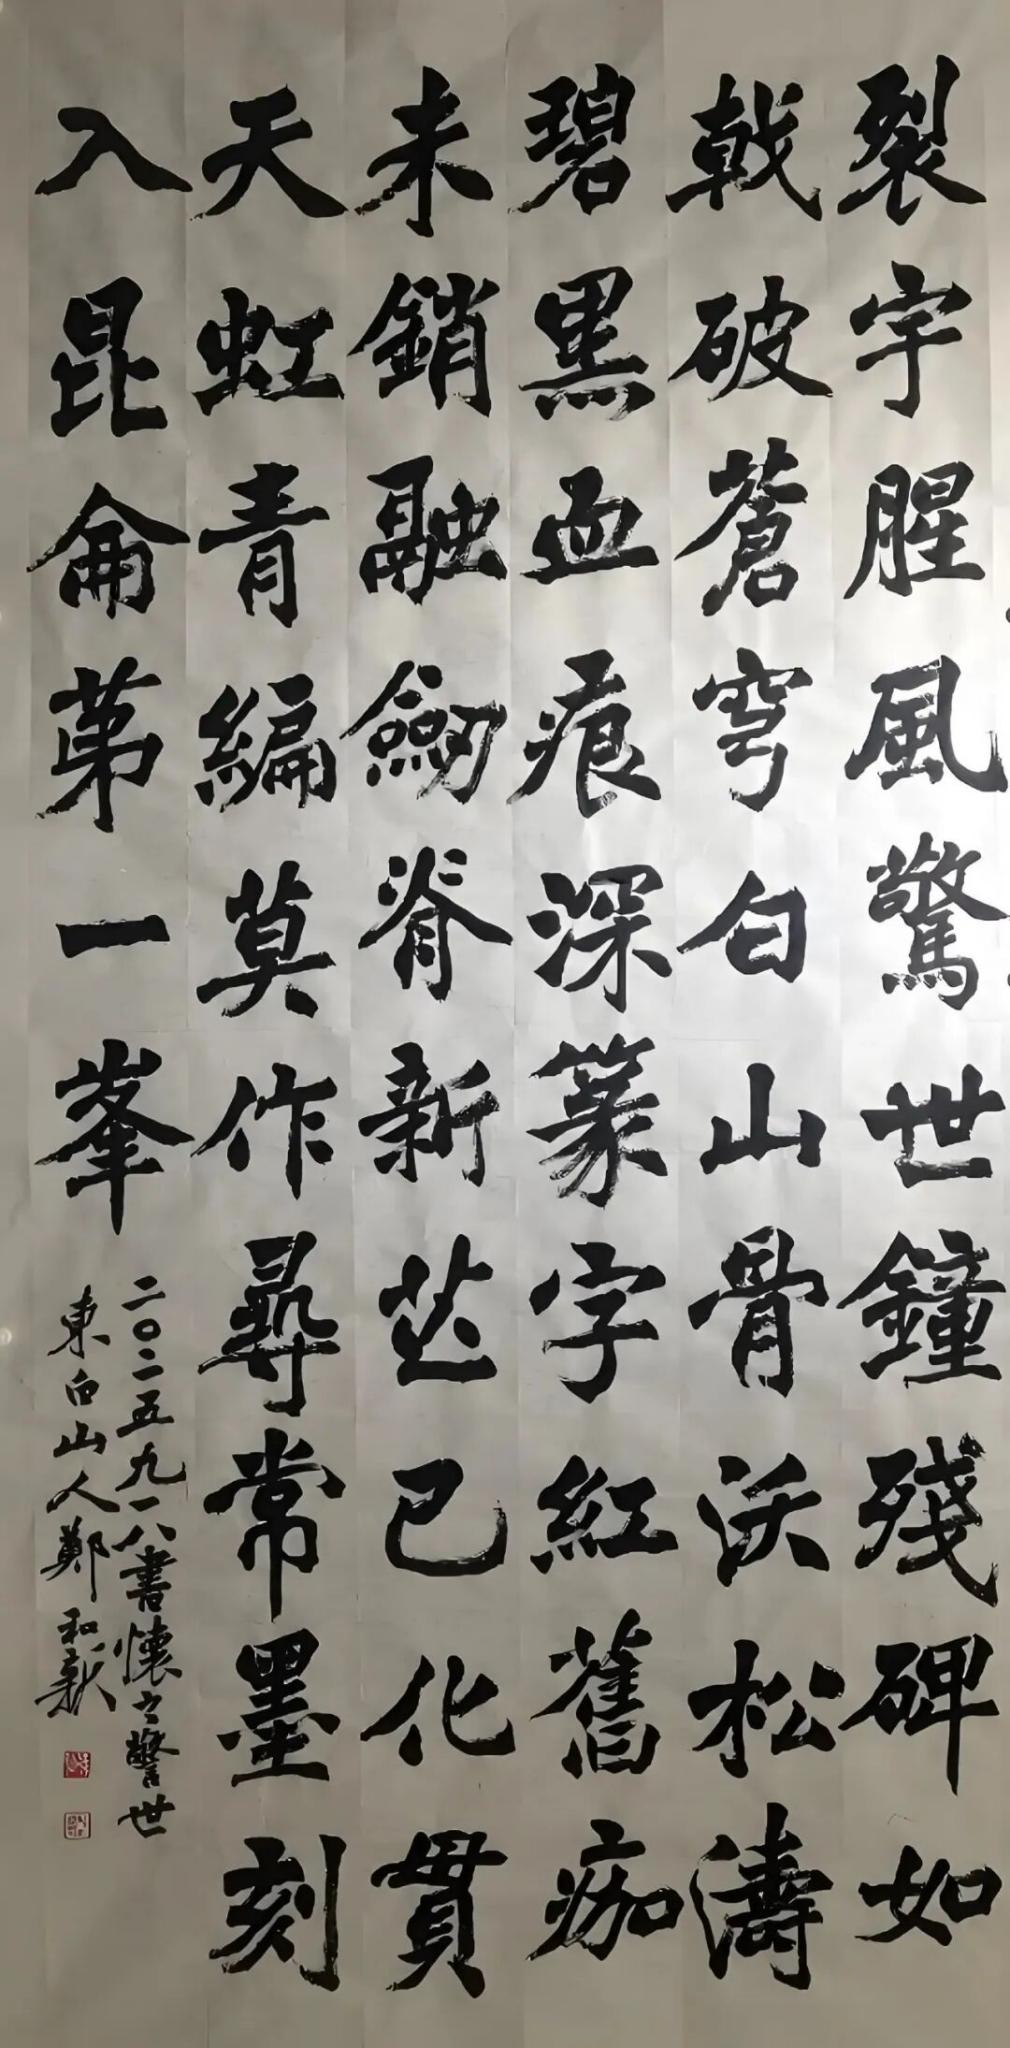 裂宇腥風驚世鐘殘碑如
戟破蒼穹白山骨沃松濤
碧黑血痕深篆字紅舊痂
未銷融劒脊新芒已化貫
天虹青編莫作尋常墨刻
入昆侖第一峯
二〇二五九一八書懷之警世
東白山人鄭和新